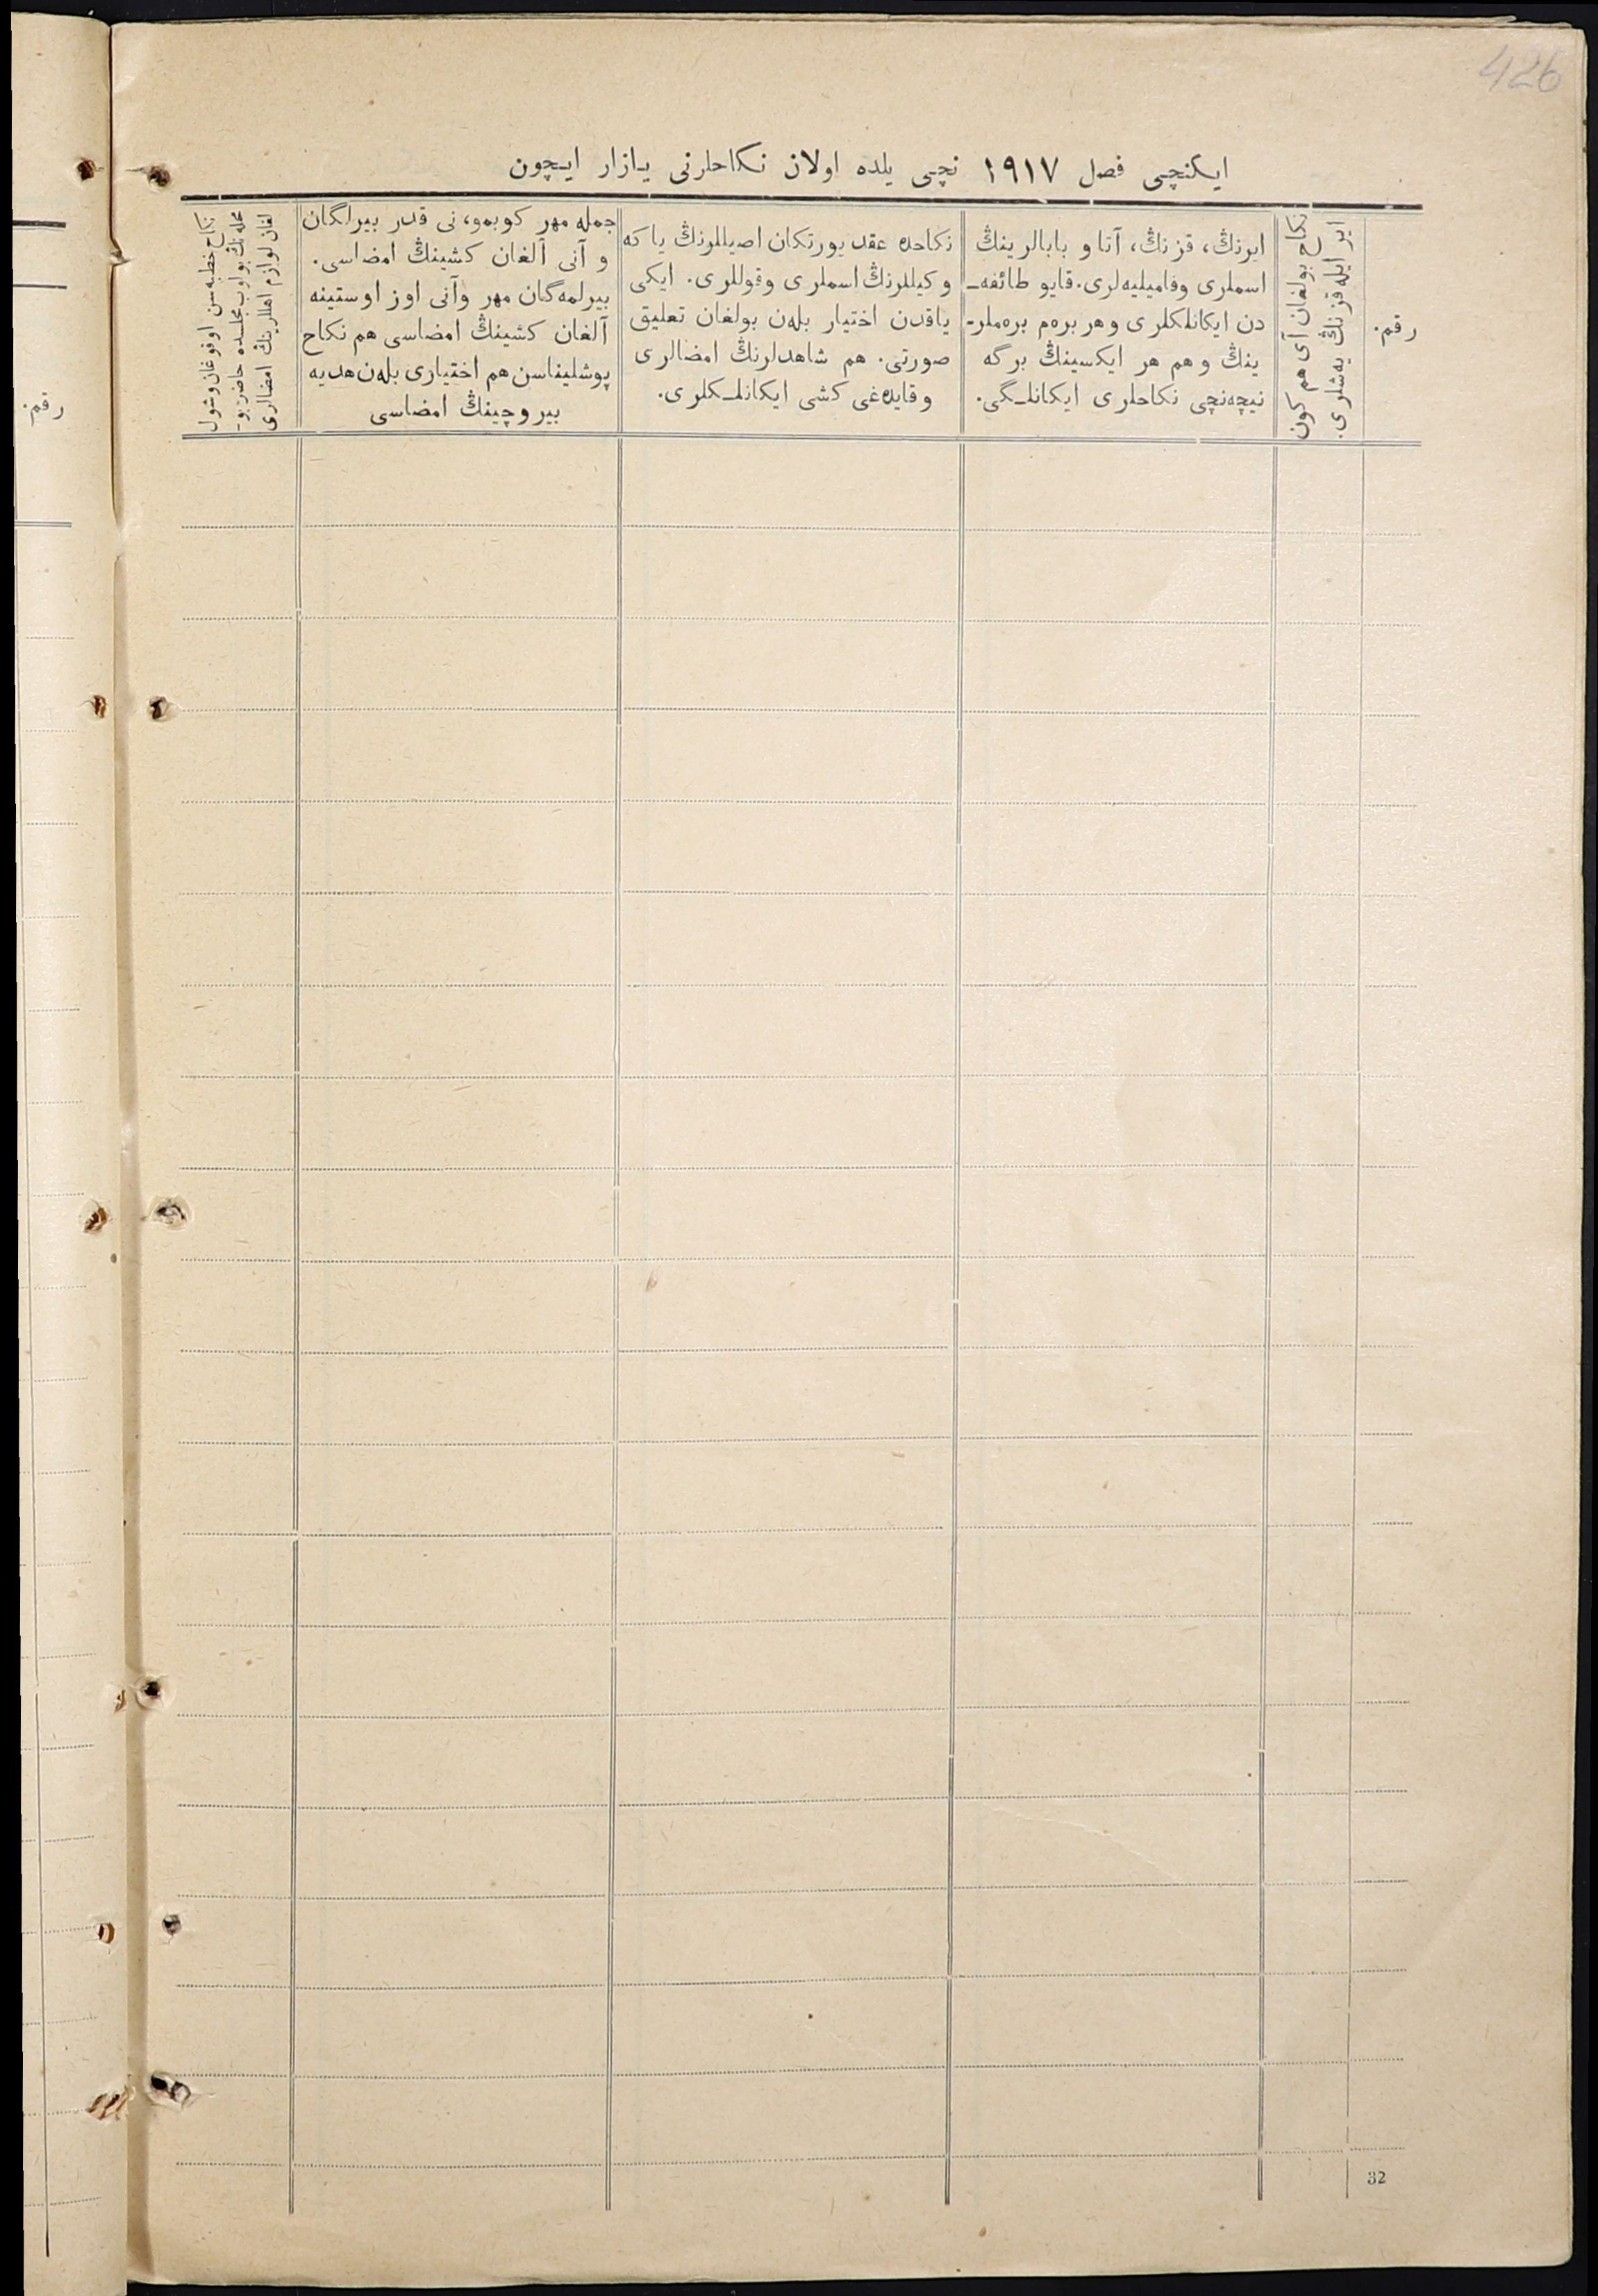 426
ایکنچی فصل ١٩١٧ نچی یلده اولان نکاحلرنی یازار ایچون
رقم.
ایر ایله قزنڭ یەشلری.
نکاح بولغان آی هم کون
ایرنڭ، قزنڭ، آتا و بابالرینڭ
اسملری وفامیلیەلری. قایو طائفه‌ـ
دن ایکانلکلری وهر برەم برەملرـ
ینڭ وهم هر ایکسینڭ برگه
نیچەنچی نکاحلری ایکانلـگی.
نکاحدە عقد یورتکان اصیللرنڭ یاکە
وکیللرنڭ اسملری وقوللری. ایکی
یاقدن اختیار بلەن بولغان تعلیق
صورتی. هم شاهدلرنڭ امضالری
وقایدەغی کشی ایکانلـکلری.
جمله مهر کوبمو، نی قدر بیرلگان
و آنی آلغان کشینڭ امضاسی.
بیرلمەگان مهر وآنی اوز اوستینه
آلغان کشینڭ امضاسی هم نکاح
پوشلیناسن هم اختیاری بلەن هدیه
بیروچینڭ امضاسی
نکاح خطبەسن اوقوغان وشول
محله‌نڭ بولوب مجلسده حاضر بوـ
لغان لوازم اهللرینڭ امضالری
رقم.
32